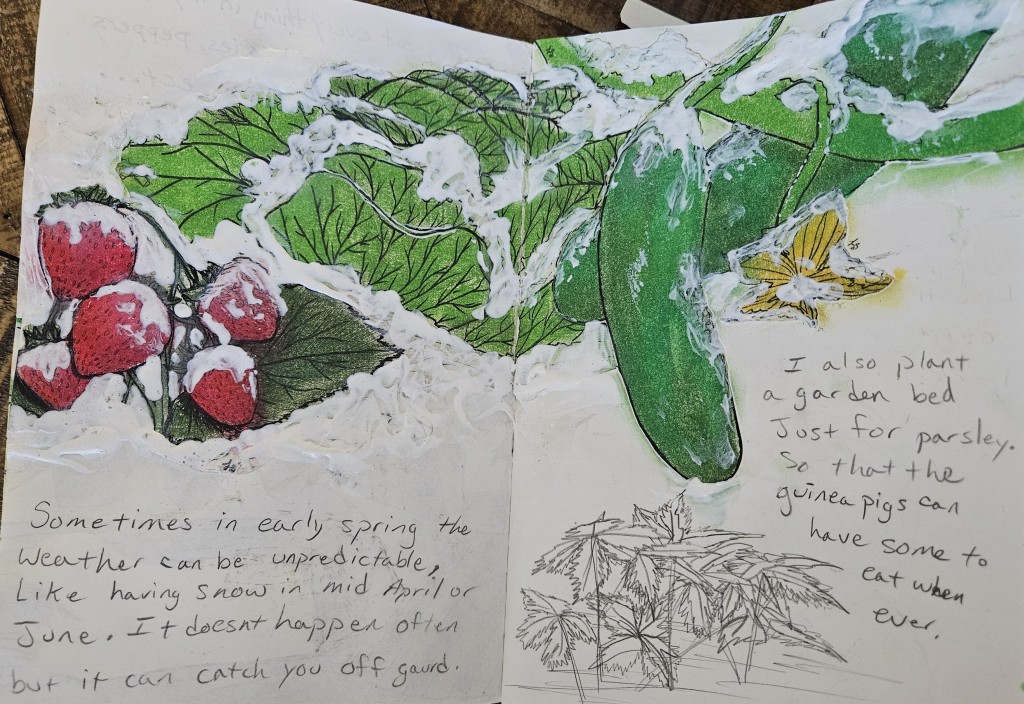 Sometimes in early spring the
weather can be unpredictable,
Like having snow in mid April or
June. It doesnt happen often
but it can catch you off gaurd.
I also plant
a garden bed
Just for parsley.
So that the
guinea pigs can
have some to
eat when
ever.